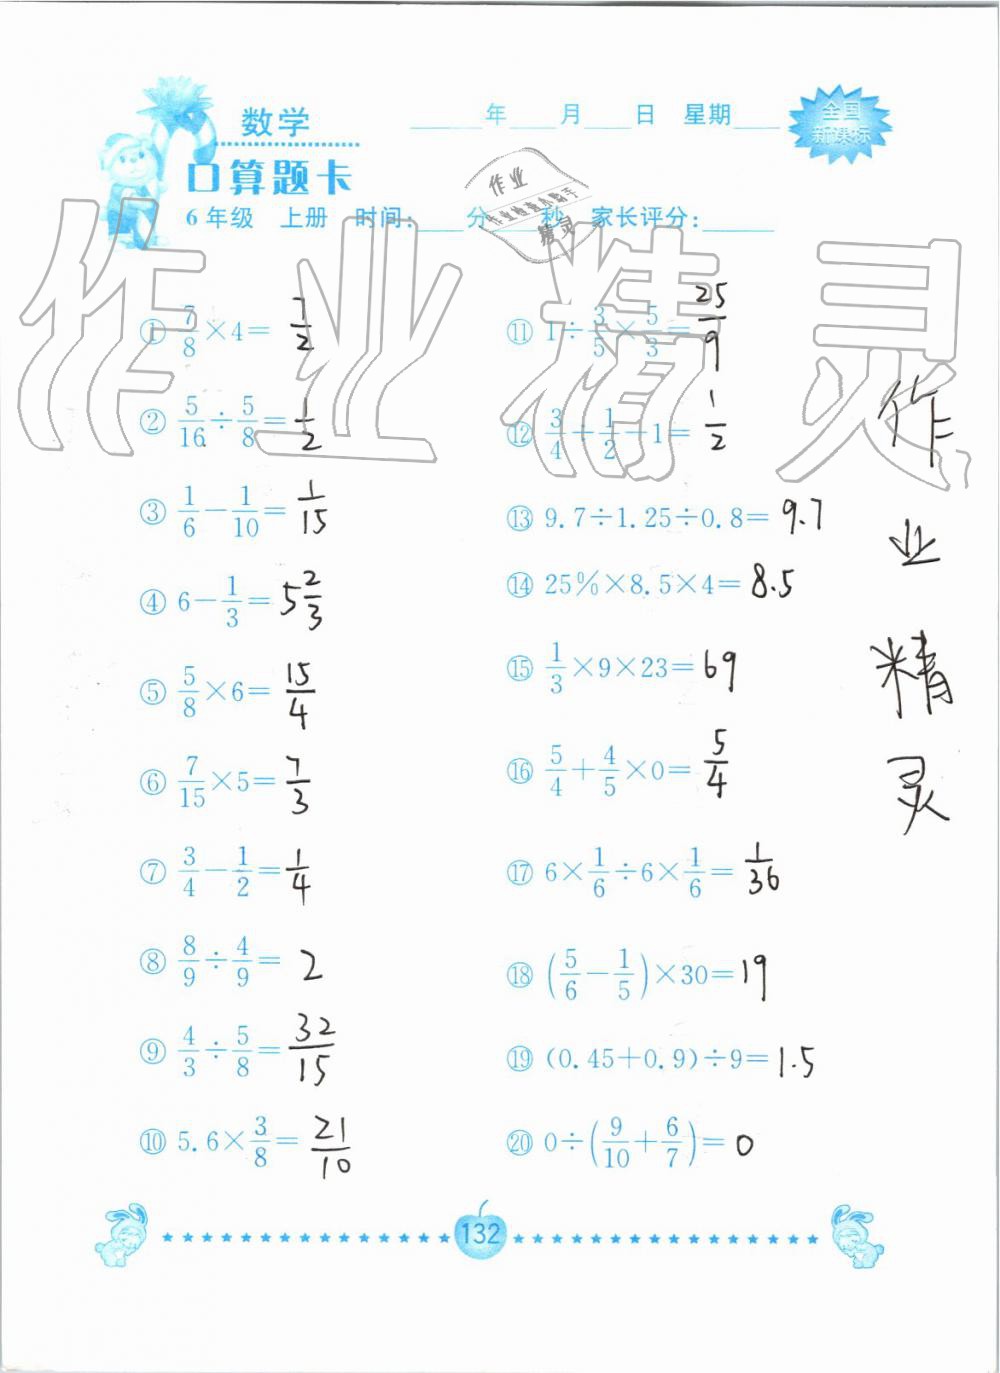 数学
____年____月____日 星期____
全国
新课标
口算题卡
作业
作业检查小助手
精灵
6年级 上册 时间:____分____秒 家长评分:____
作业精灵
① 7/8×4= 7/2
② 5/16÷5/8= 1/2
③ 1/6-1/10= 1/15
④ 6-1/3= 5 2/3
⑤ 5/8×6= 15/4
⑥ 7/15×5= 7/3
⑦ 3/4-1/2= 1/4
⑧ 8/9÷4/9= 2
⑨ 4/3÷5/8= 32/15
⑩ 5.6×3/8= 21/10
⑪ 1÷3/5×5/3= 25/9
⑫ 3/4÷1/2-1= 1/2
⑬ 9.7÷1.25÷0.8= 9.7
⑭ 25%×8.5×4= 8.5
⑮ 1/3×9×23= 69
⑯ 5/4+4/5×0= 5/4
⑰ 6×1/6÷6×1/6= 1/36
⑱ (5/6-1/5)×30= 19
⑲ (0.45+0.9)÷9= 1.5
⑳ 0÷(9/10+6/7)= 0
作
业
精
灵
132